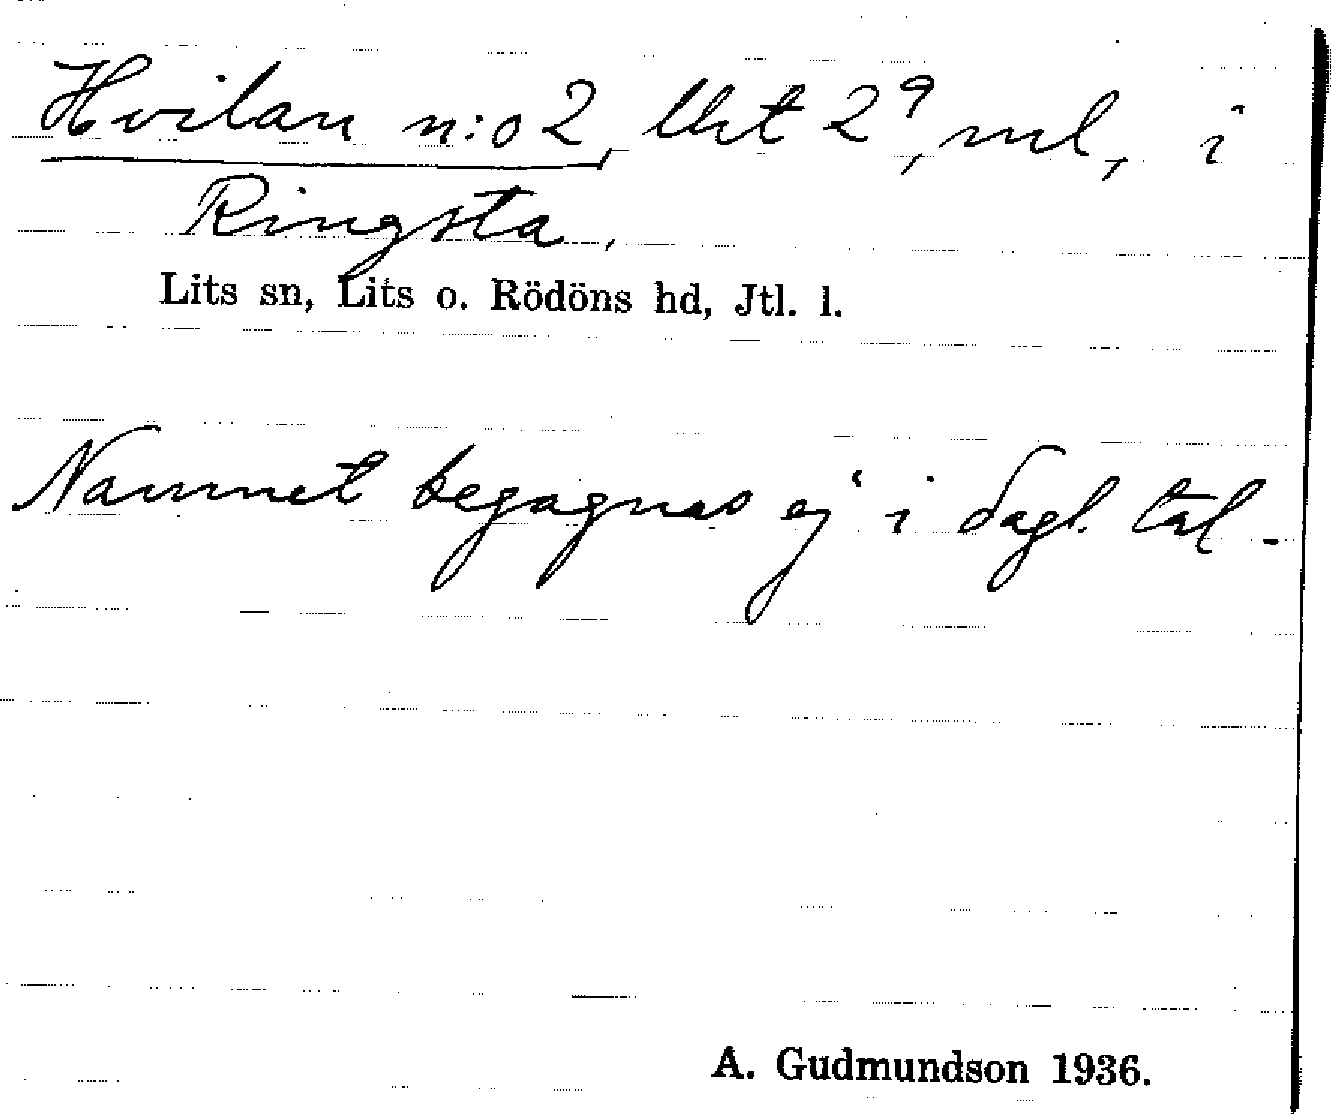 Hvilan n:o 2, litt 2⁹, ml, i
Ringsta.
Lits sn, Lits o. Rödöns hd, Jtl. l.
Namnet begagnas ej i dagl. tal.
A. Gudmundson 1936.